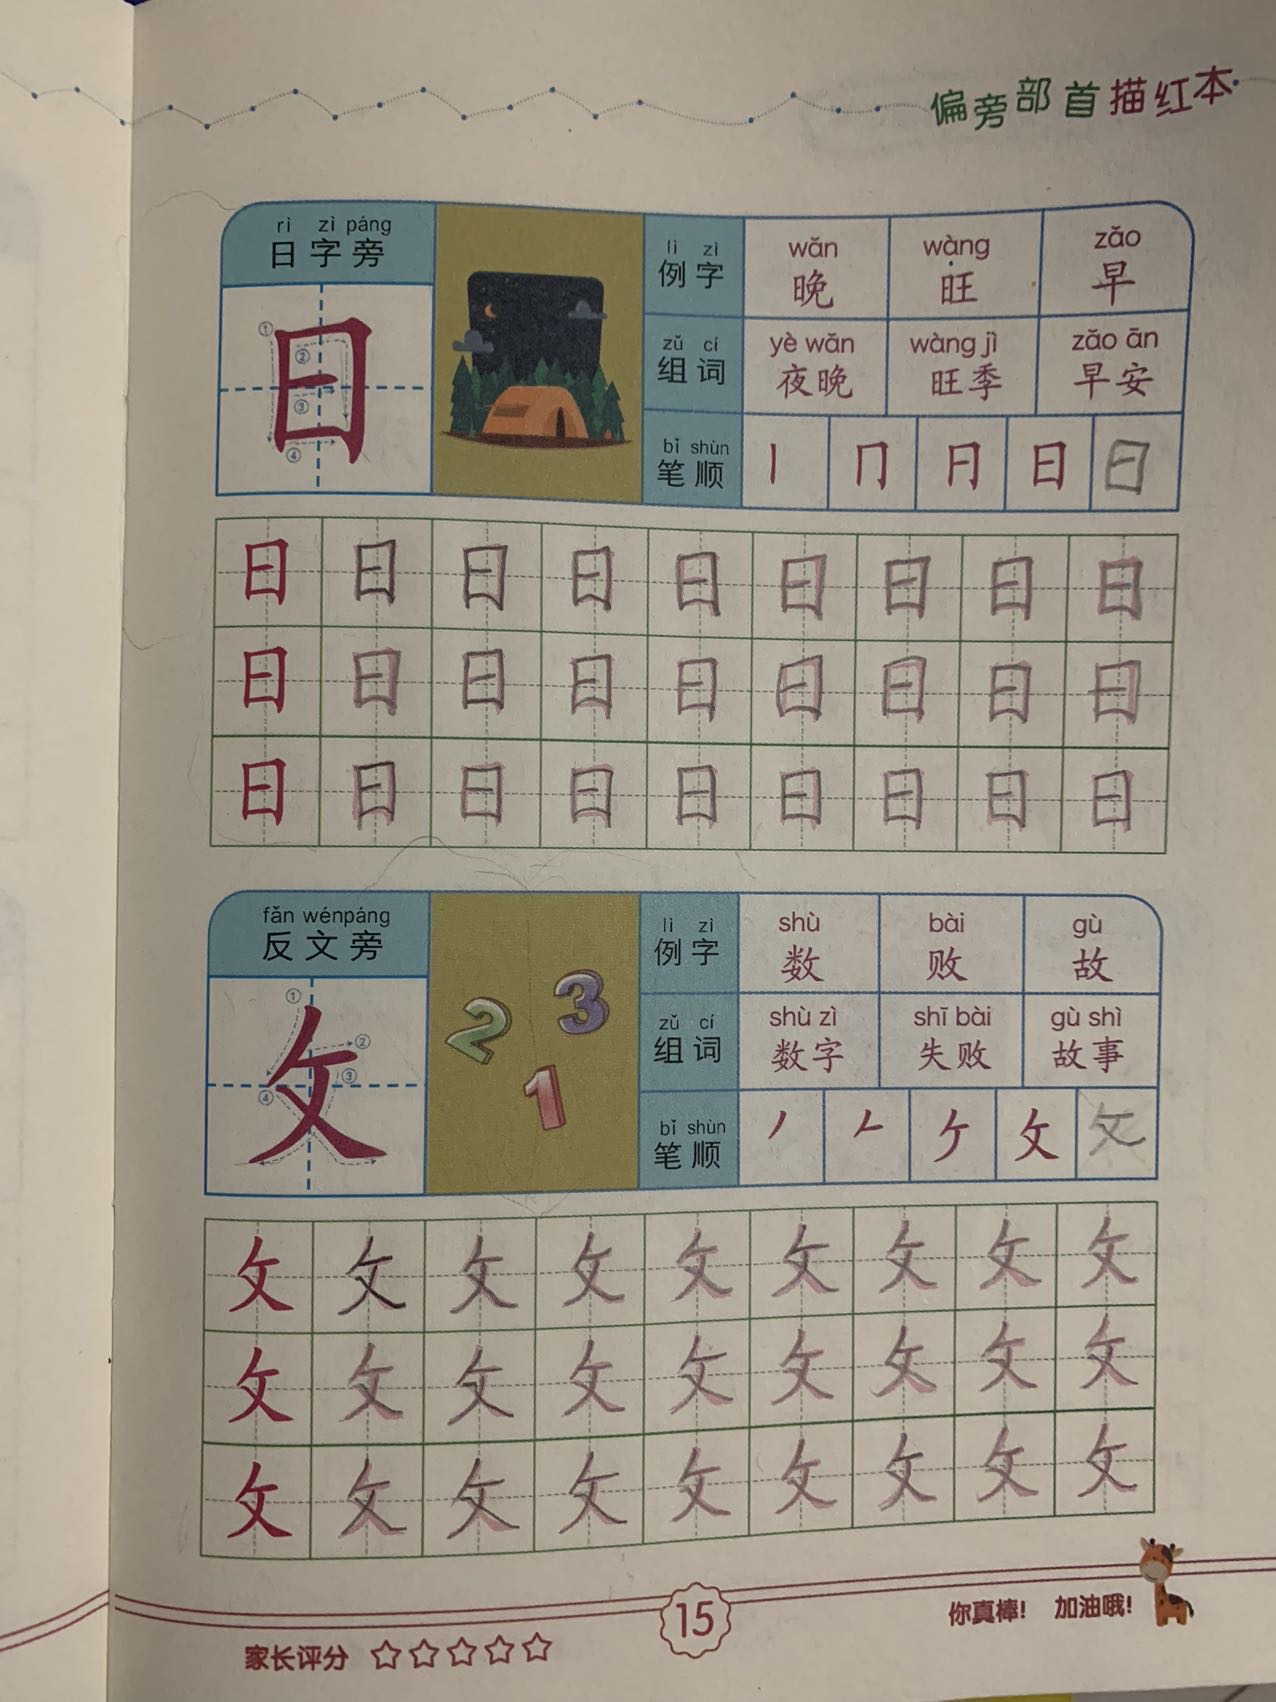 偏旁部首描红本
rì zì páng
日字旁
① ② ③ ④
日
lì zì
例字
wǎn wàng zǎo
晚 旺 早
zǔ cí
组词
yè wǎn wàng jì zǎo ān
夜晚 旺季 早安
bǐ shùn
笔顺
丨 冂 月 日 日
日 日 日 日 日 日 日 日 日
日 日 日 日 日 日 日 日 日
日 日 日 日 日 日 日 日 日
fǎn wénpáng
反文旁
① ② ③ ④
攵
2 3 1
lì zì
例字
shù bài gù
数 败 故
zǔ cí
组词
shù zì shī bài gù shì
数字 失败 故事
bǐ shùn
笔顺
丿 𠂉 ケ 攵 攵
攵 攵 攵 攵 攵 攵 攵 攵 攵
攵 攵 攵 攵 攵 攵 攵 攵 攵
攵 攵 攵 攵 攵 攵 攵 攵 攵
你真棒! 加油哦!
15
家长评分 ☆☆☆☆☆